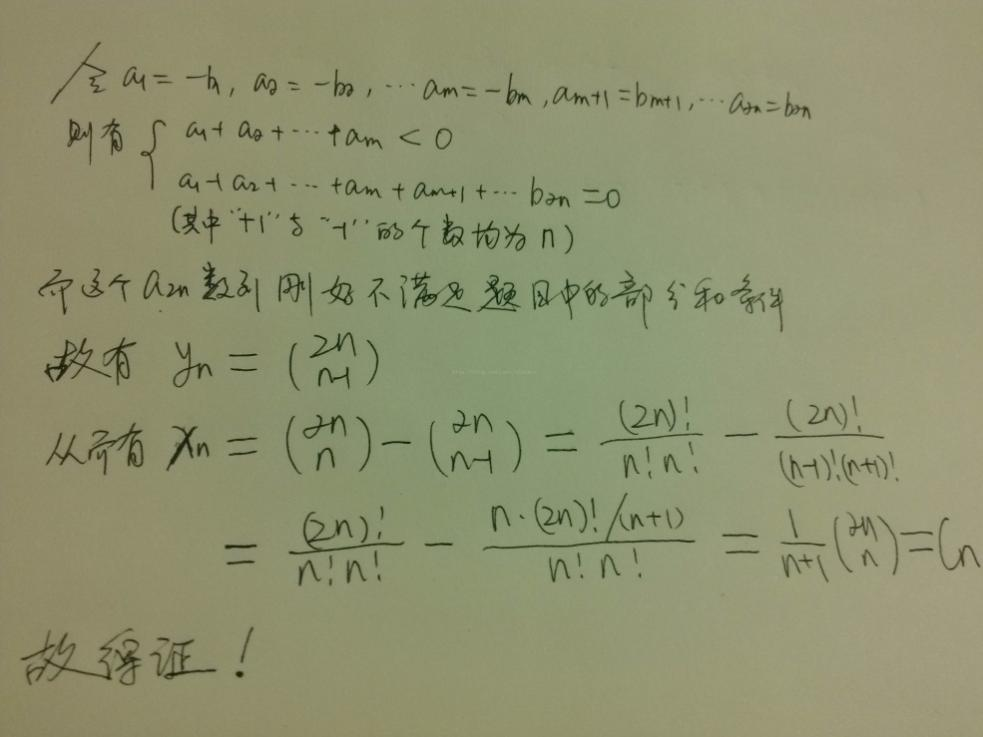 令 a₁ = -b₁, a₂ = -b₂, ⋯ aₘ = -bₘ, aₘ₊₁ = bₘ₊₁, ⋯ a₂ₙ = b₂ₙ
则有 { a₁ + a₂ + ⋯ + aₘ < 0
a₁ + a₂ + ⋯ + aₘ + aₘ₊₁ + ⋯ b₂ₙ = 0
(其中"+1"与"-1"的个数均为 n)
而这个 a₂ₙ 数列刚好不满足题目中的部分和条件
故有 yₙ = (2n n-1)
从而有 Xₙ = (2n n) - (2n n-1) = (2n)!/n!n! - (2n)!/(n-1)!(n+1)!
= (2n)!/n!n! - n·(2n)!/(n+1)/n!n! = 1/n+1 (2n n) = Cₙ
故得证!